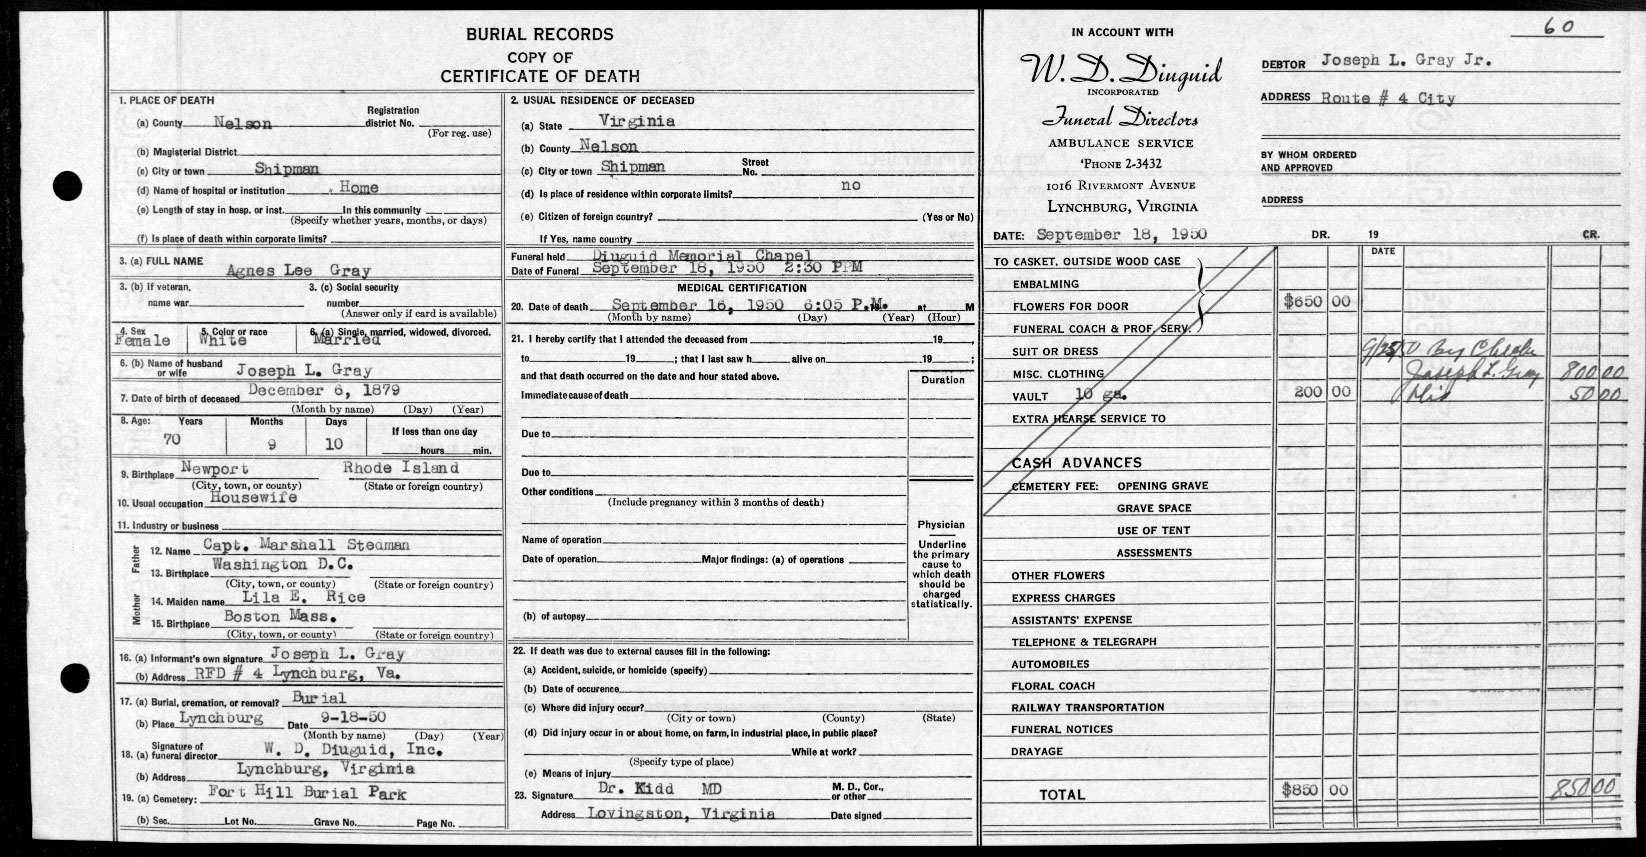 BURIAL RECORDS
COPY OF
CERTIFICATE OF DEATH
1. PLACE OF DEATH
(a) County Nelson Registration district No. (For reg. use)
(b) Magisterial District
(c) City or town Shipman
(d) Name of hospital or institution Home
(e) Length of stay in hosp. or inst. In this community
(Specify whether years, months, or days)
(f) Is place of death within corporate limits?
3. (a) FULL NAME Agnes Lee Gray
3. (b) If veteran, name war 3. (c) Social security number
(Answer only if card is available)
4. Sex Female 5. Color or race White 6. (a) Single, married, widowed, divorced. Married
6. (b) Name of husband or wife Joseph L. Gray
7. Date of birth of deceased December 6, 1879
(Month by name) (Day) (Year)
8. Age: Years 70 Months 9 Days 10 If less than one day hours min.
9. Birthplace Newport Rhode Island
(City, town, or county) (State or foreign country)
10. Usual occupation Housewife
11. Industry or business
Father 12. Name Capt. Marshall Stedman
13. Birthplace Washington D.C.
(City, town, or county) (State or foreign country)
Mother 14. Maiden name Lila E. Rice
15. Birthplace Boston Mass.
(City, town, or county) (State or foreign country)
16. (a) Informant's own signature Joseph L. Gray
(b) Address RFD # 4 Lynchburg, Va.
17. (a) Burial, cremation, or removal? Burial
(b) Place Lynchburg Date 9-18-50
(Month by name) (Day) (Year)
18. (a) Signature of funeral director W. D. Diuguid, Inc.
(b) Address Lynchburg, Virginia
19. (a) Cemetery: Fort Hill Burial Park
(b) Sec. Lot No. Grave No. Page No.
2. USUAL RESIDENCE OF DECEASED
(a) State Virginia
(b) County Nelson
(c) City or town Shipman Street No.
(d) Is place of residence within corporate limits? no
(e) Citizen of foreign country? (Yes or No)
If Yes, name country
Funeral held Diuguid Memorial Chapel
Date of Funeral September 18, 1950 2:30 PPM
MEDICAL CERTIFICATION
20. Date of death September 16, 1950 6:05 P.M. at M
(Month by name) (Day) (Year) (Hour)
21. I hereby certify that I attended the deceased from 19 ,
to 19 ; that I last saw h alive on 19 ;
and that death occurred on the date and hour stated above.
Duration
Immediate cause of death
Due to
Due to
Other conditions
(Include pregnancy within 3 months of death)
Physician
Underline the primary cause to which death should be charged statistically.
Name of operation
Date of operation Major findings: (a) of operations
(b) of autopsy
22. If death was due to external causes fill in the following:
(a) Accident, suicide, or homicide (specify)
(b) Date of occurence
(c) Where did injury occur?
(City or town) (County) (State)
(d) Did injury occur in or about home, on farm, in industrial place, in public place?
While at work?
(Specify type of place)
(e) Means of injury
23. Signature Dr. Kidd MD M. D., Cor., or other
Address Lovingston, Virginia Date signed
60
IN ACCOUNT WITH
W. D. Diuguid
INCORPORATED
Funeral Directors
AMBULANCE SERVICE
'PHONE 2-3432
1016 RIVERMONT AVENUE
LYNCHBURG, VIRGINIA
DEBTOR Joseph L. Gray Jr.
ADDRESS Route # 4 City
BY WHOM ORDERED AND APPROVED
ADDRESS
DATE: September 18, 1950 DR. 19 CR.
DATE
TO CASKET, OUTSIDE WOOD CASE
EMBALMING
FLOWERS FOR DOOR $650 00
FUNERAL COACH & PROF. SERV.
SUIT OR DRESS 9/25/50 By Check
MISC. CLOTHING Joseph L. Gray 800 00
VAULT 10 ga. 200 00 Dis 50 00
EXTRA HEARSE SERVICE TO
CASH ADVANCES
CEMETERY FEE: OPENING GRAVE
GRAVE SPACE
USE OF TENT
ASSESSMENTS
OTHER FLOWERS
EXPRESS CHARGES
ASSISTANTS' EXPENSE
TELEPHONE & TELEGRAPH
AUTOMOBILES
FLORAL COACH
RAILWAY TRANSPORTATION
FUNERAL NOTICES
DRAYAGE
TOTAL $850 00 850 00